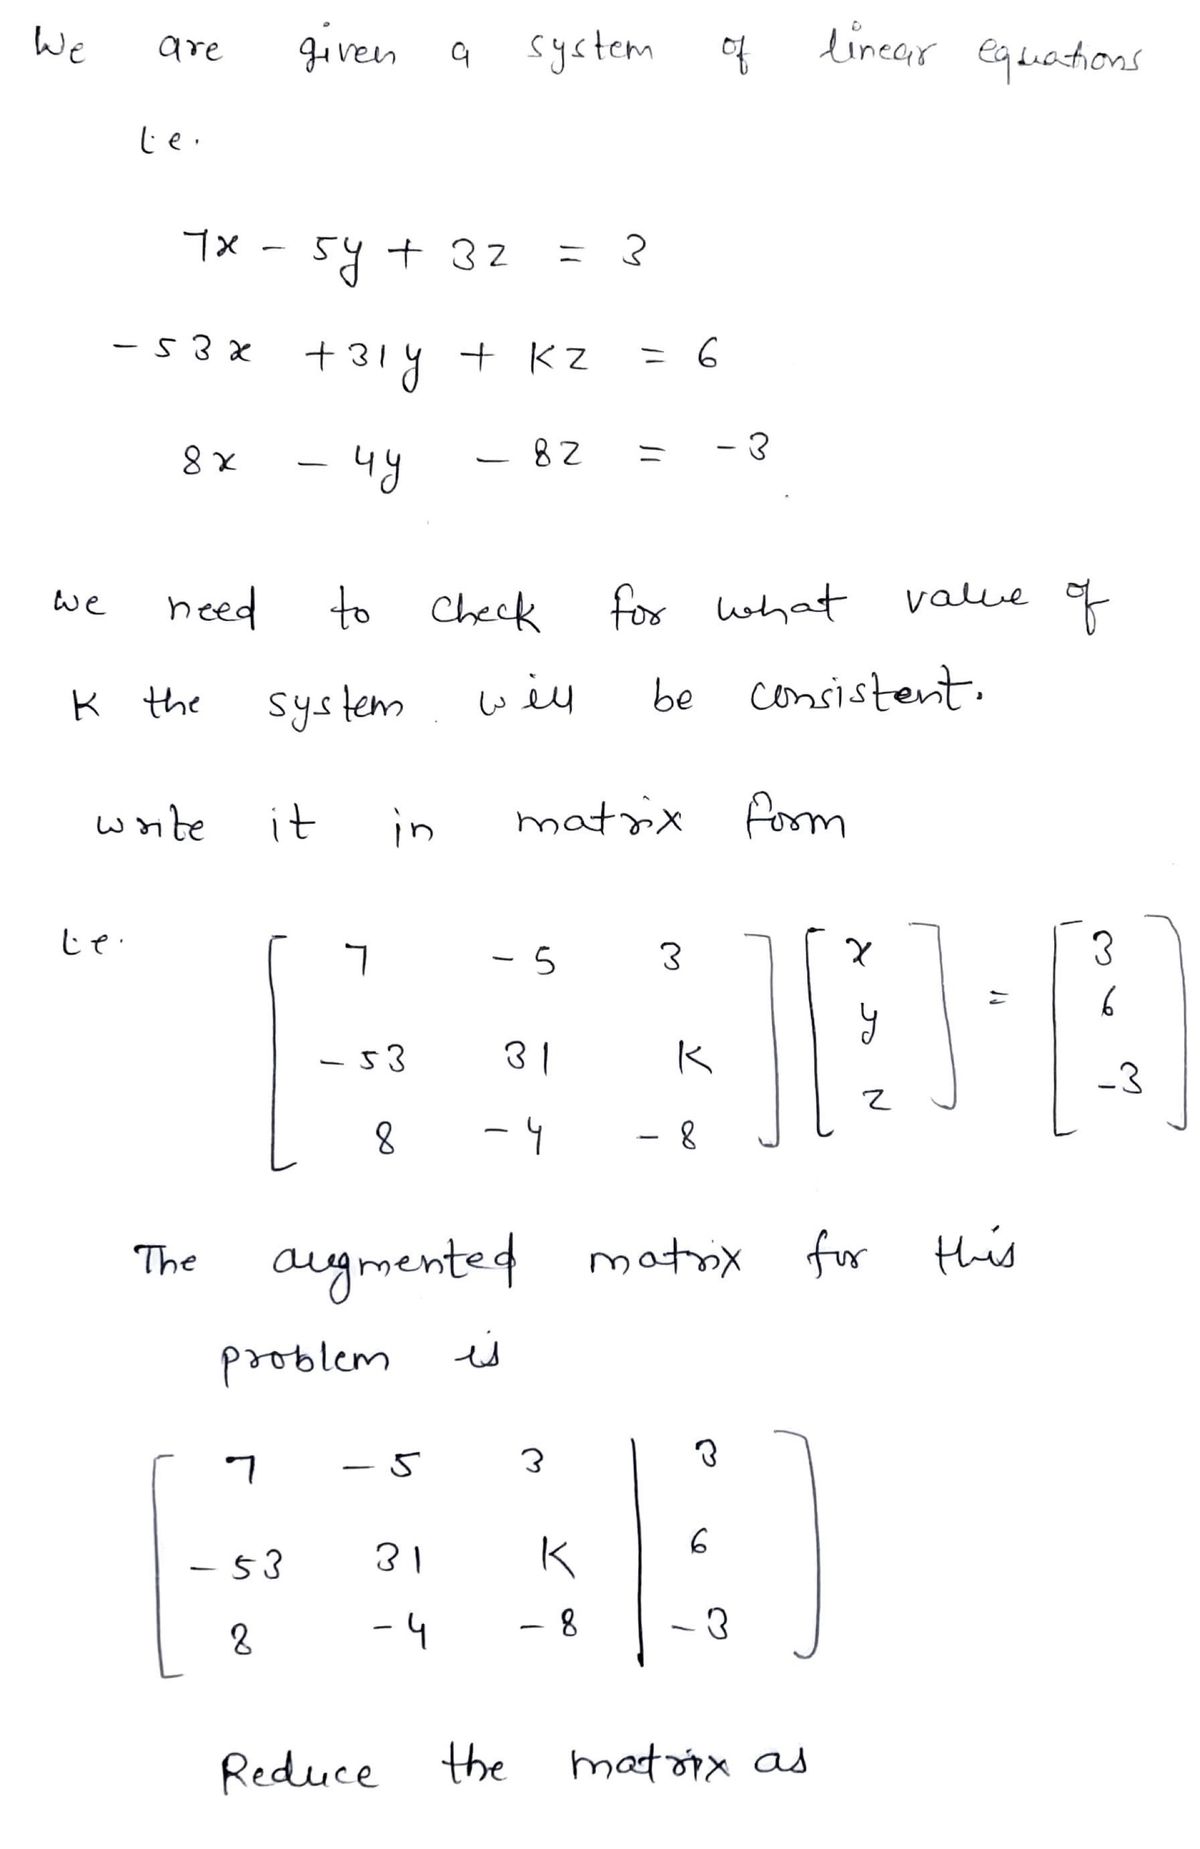 We are given a system of linear equations
i.e.
7x - 5y + 3z = 3
-53x + 31y + Kz = 6
8x - 4y - 8z = -3
we need to check for what value of
K the system will be consistent.
write it in matrix form
i.e. [ 7 -5 3 ] [ x ] = [ 3 ]
[ -53 31 K ] [ y ] [ 6 ]
[ 8 -4 -8 ] [ z ] [ -3 ]
The augmented matrix for this
problem is
[ 7 -5 3 | 3 ]
[ -53 31 K | 6 ]
[ 8 -4 -8 | -3 ]
Reduce the matrix as